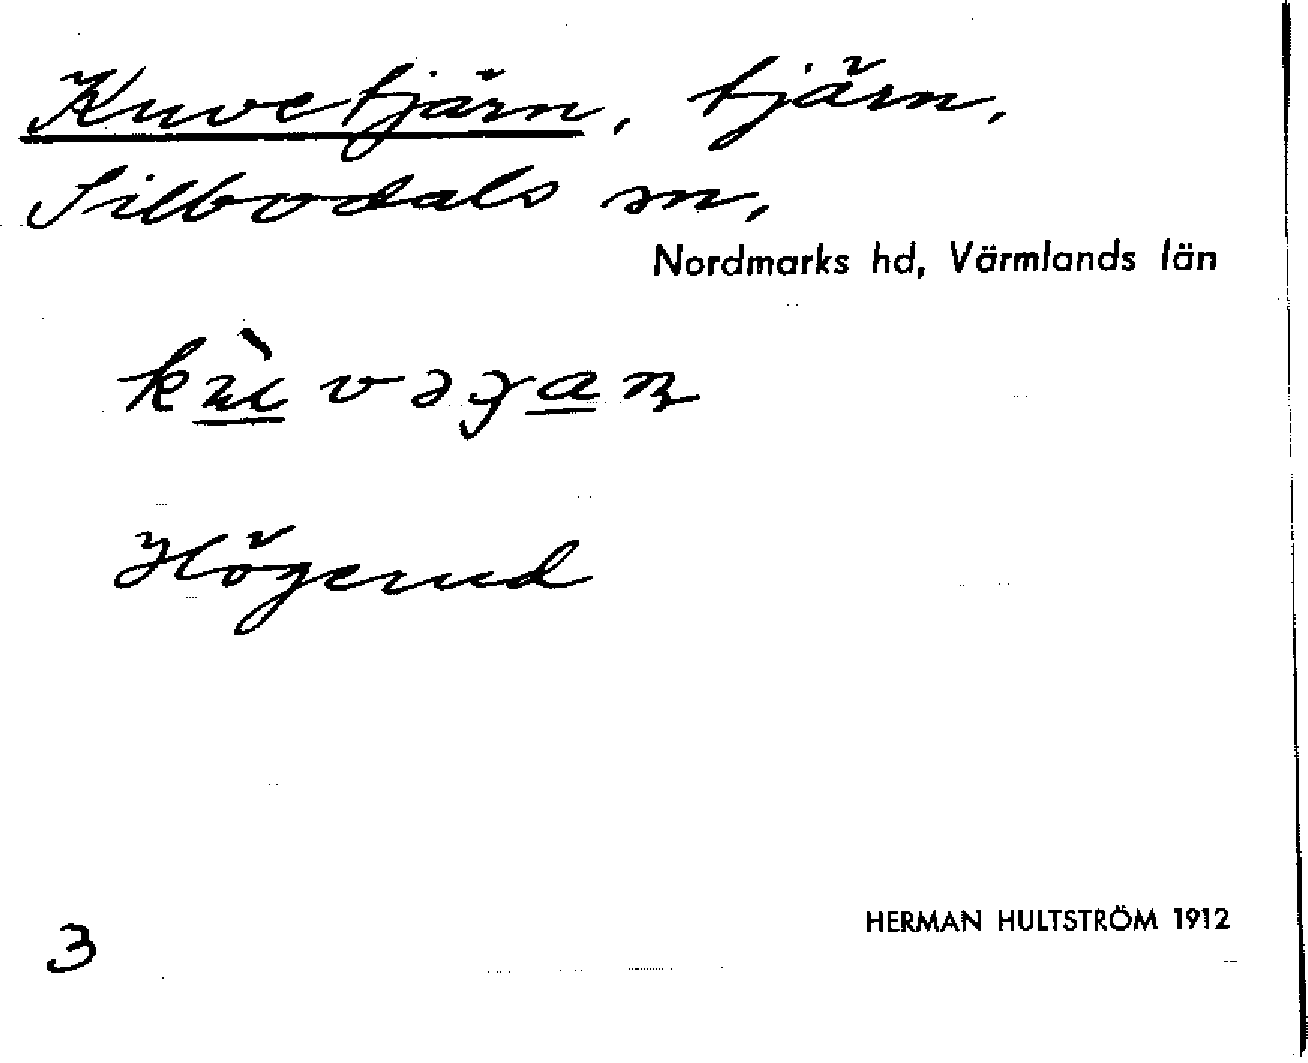 Kuvetjärn, tjärn,
Silbodals sn,
Nordmarks hd, Värmlands län
Högerud
3
HERMAN HULTSTRÖM 1912